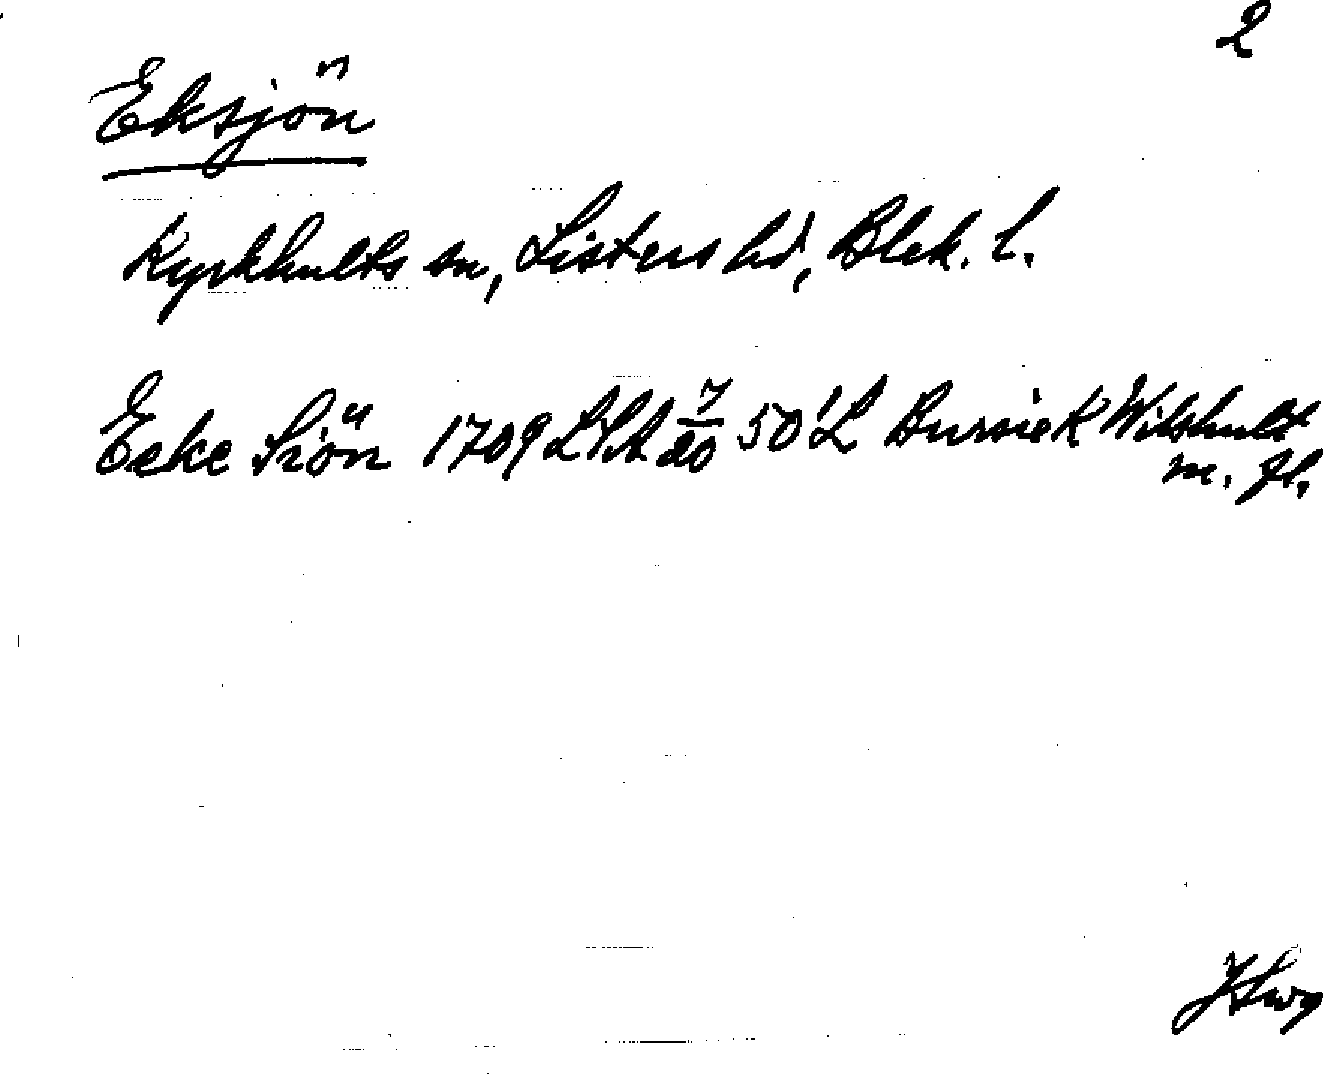 2
Eksjön
Kyrkhults sn, Listers hd, Blek. l.
Ecke Siön 1709 LSA 7/20 50 L Wilshult
m. fl.